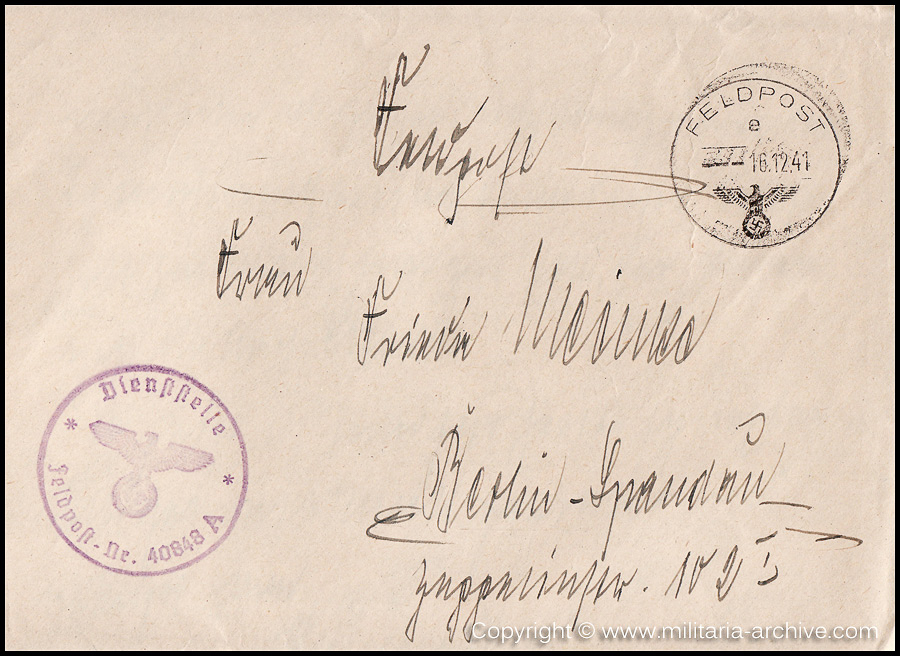 Feldpost
FELDPOST
e
16.12.41
Frau
Frieda
Berlin-Spandau
Zeppelinstr. 102 I
Dienststelle
Feldpost-Nr. 40848 A
Copyright © www.militaria-archive.com